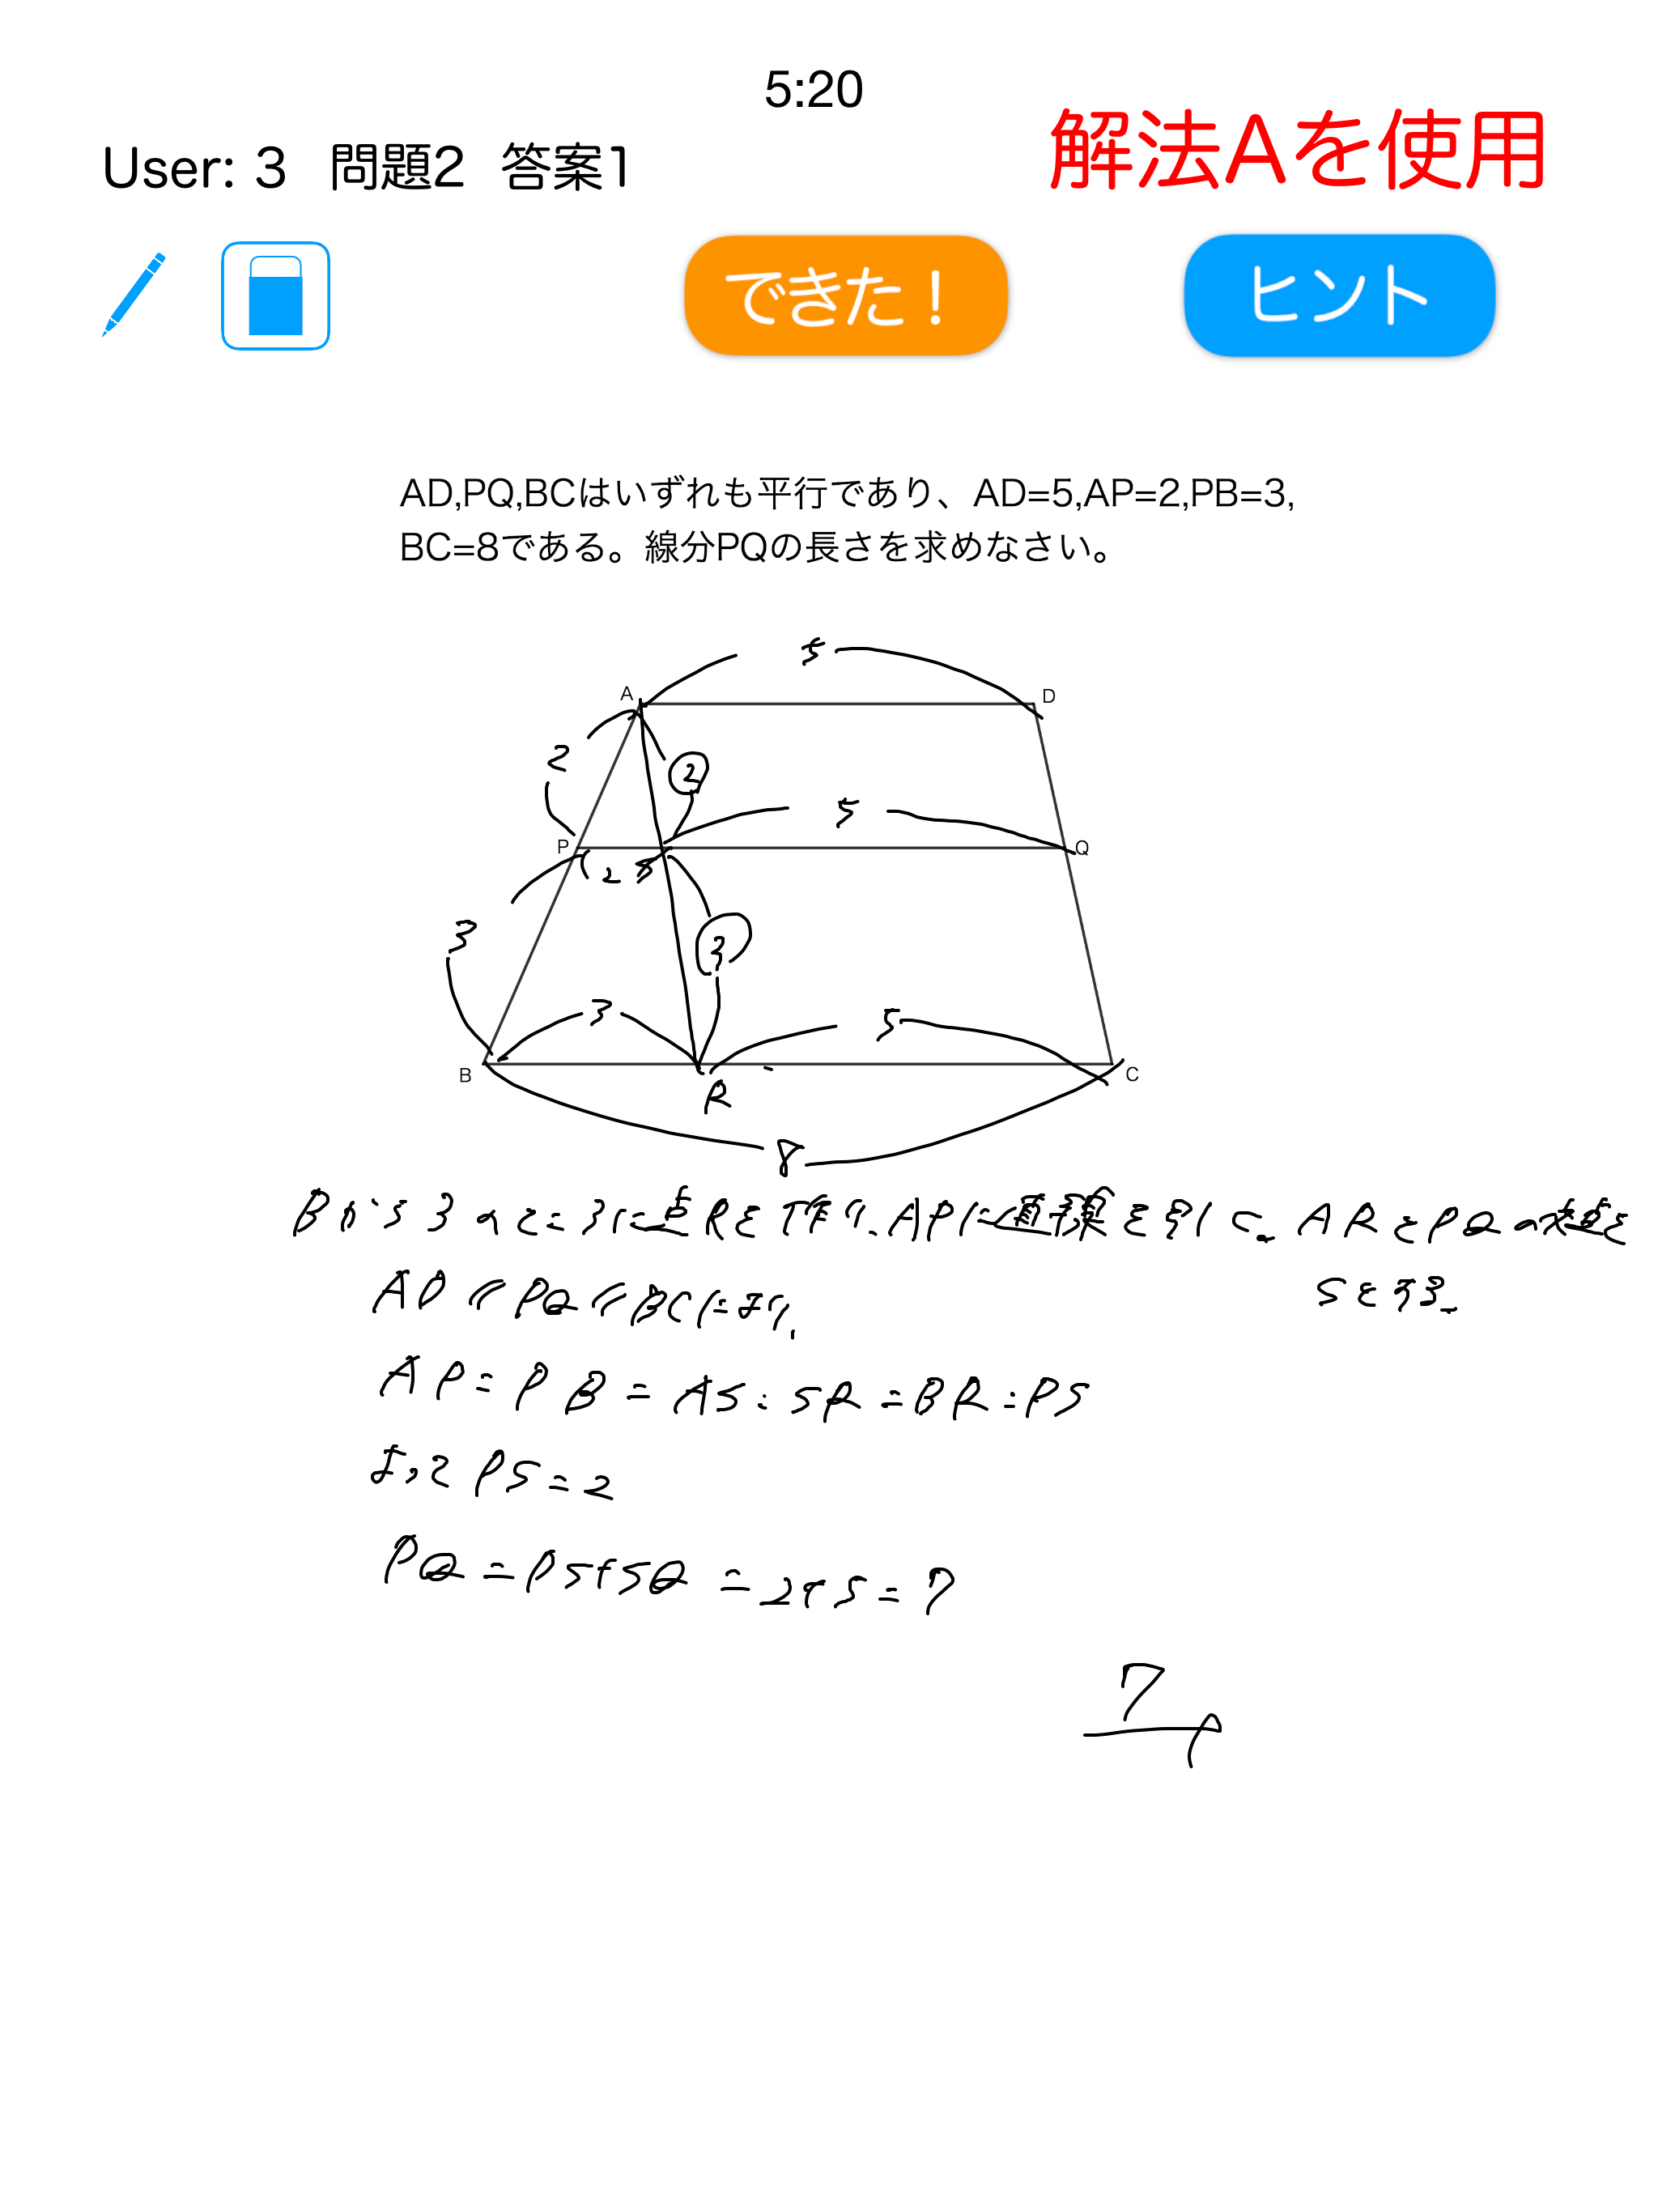 5:20
解法Aを使用
User: 3 問題2 答案1
できた！
ヒント
AD,PQ,BCはいずれも平行であり、AD=5,AP=2,PB=3,
BC=8である。線分PQの長さを求めなさい。
5
A
D
2
②
5
P
Q
2
S
3
③
3
5
B
R
C
8
Bから3のところに点Rを作り、APに直線を引く。ARとPQの交点を
Sとする。
AD//PQ//BCより、
AP:PB=AS:SR=BR:PS
よってPS=2
PQ=PS+SQ=2+5=7
7